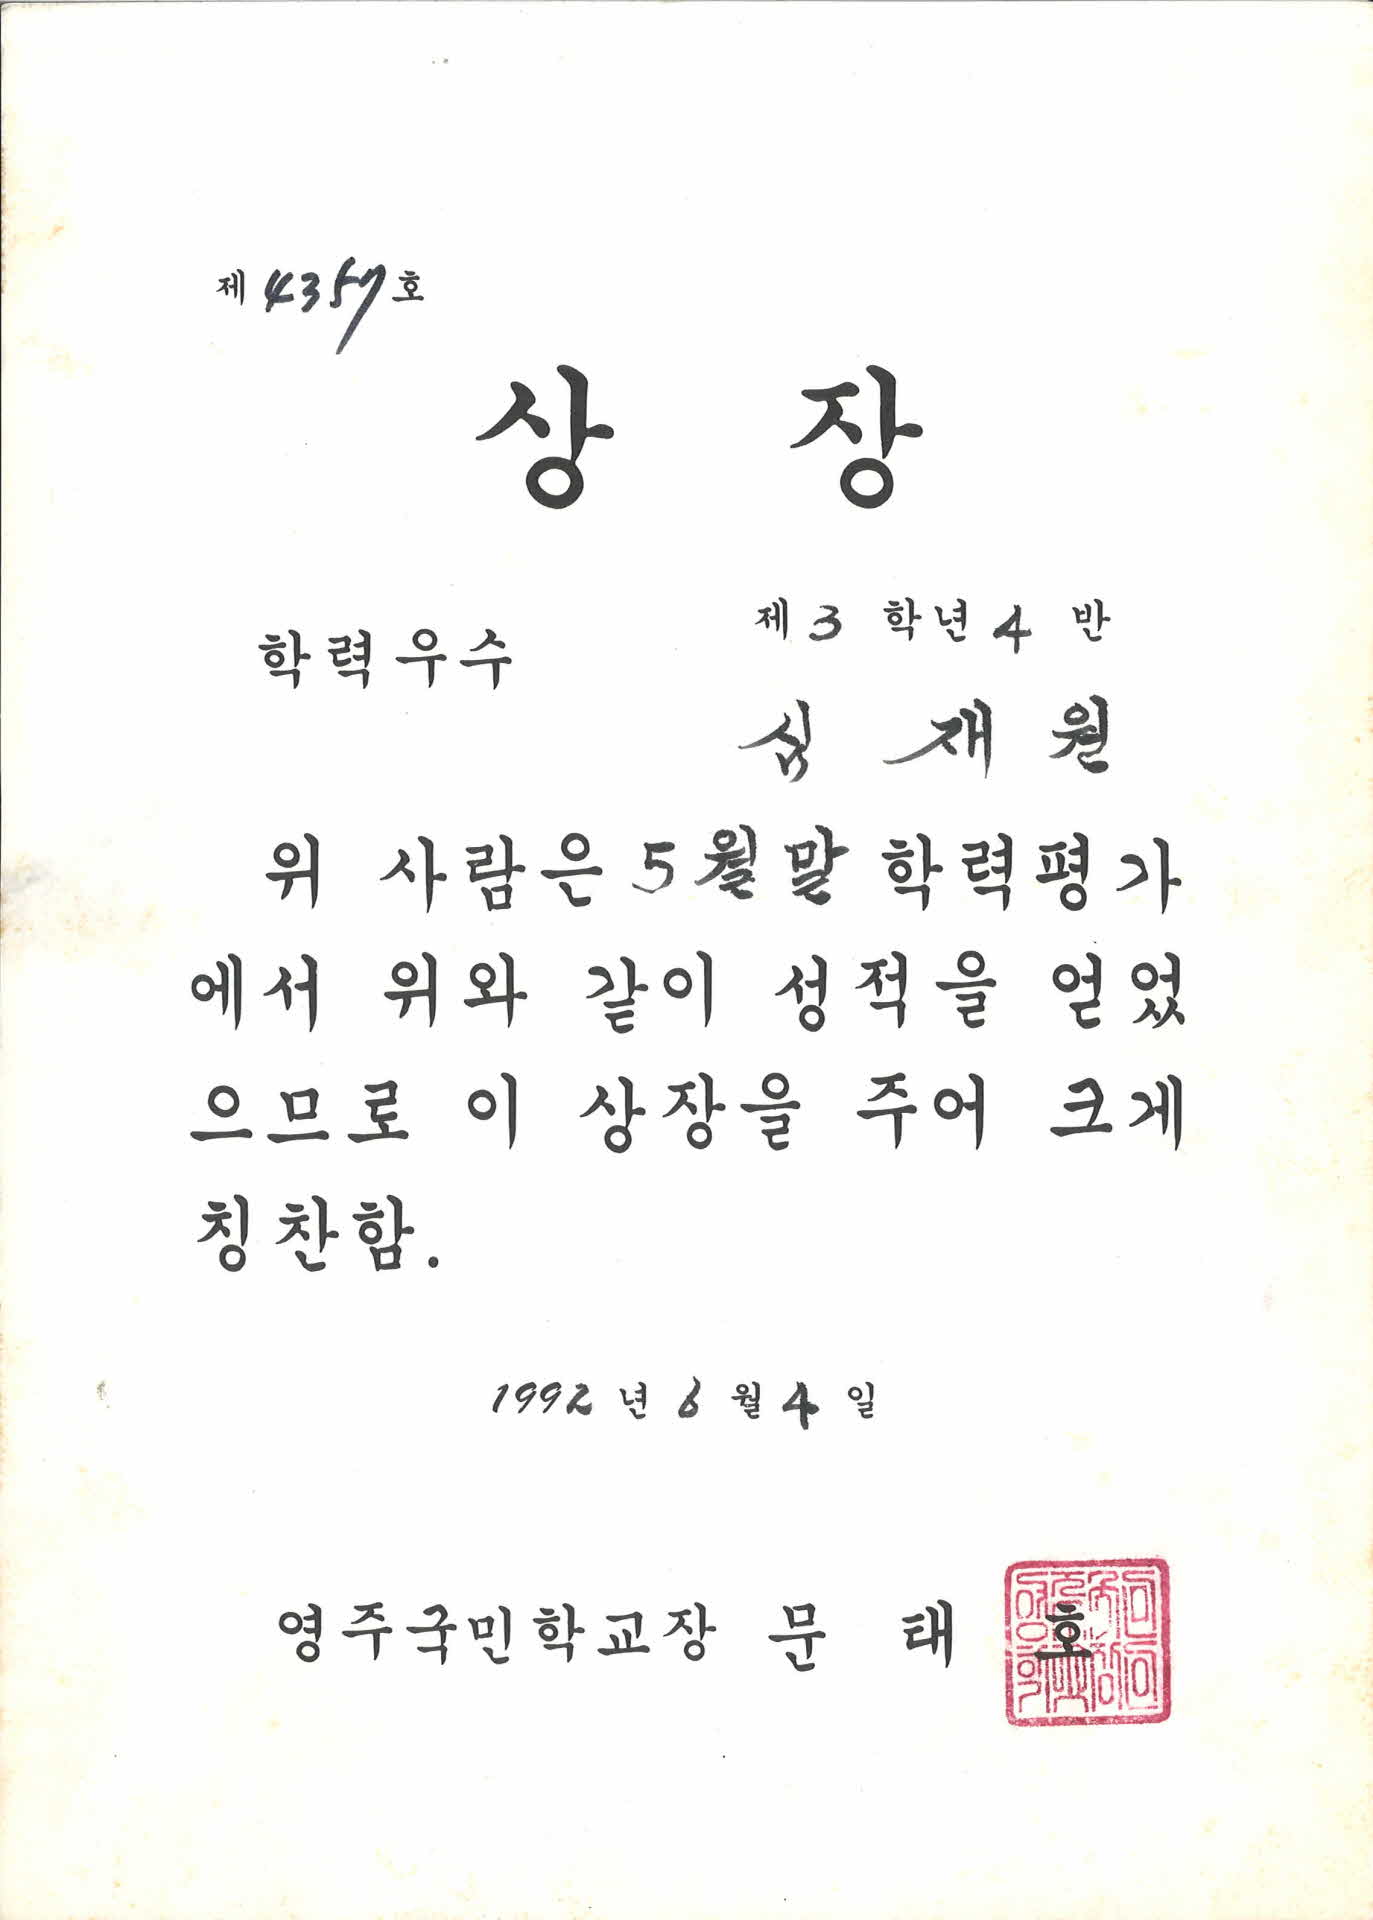 제 4357 호
상 장
제 3 학년 4 반
학력우수
심 재 원
위 사람은 5월말 학력평가
에서 위와 같이 성적을 얻었
으므로 이 상장을 주어 크게
칭찬함.
1992 년 6 월 4 일
영주국민학교장 문 태 호